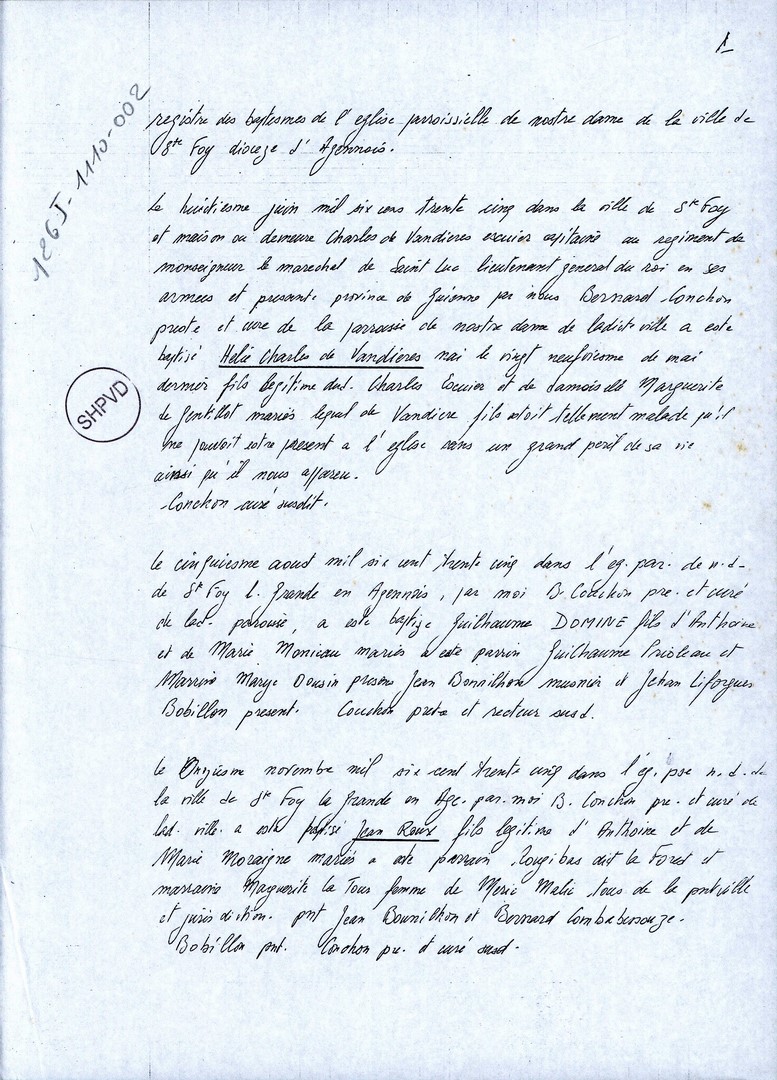 1
126J-1110-002
registre des baptesmes de l'eglise parroissielle de nostre dame de la ville de
Ste Foy dioceze d'Agennois.
le huictiesme juin mil six cens trente cinq dans la ville de Ste Foy
et maison ou demeure Charles de Vandieres escuier capitaine au regiment de
monseigneur le marechal de Saint Luc lieutenant general du roi en ses
armees et presente province de Guienne par nous Bernard Conchon
prete et cure de la parroisse de nostre dame de ladicte ville a este
baptisé Helie Charles de Vandieres nai le vingt neufviesme de mai
dernier fils legitime dud. Charles Escuier et de damoiselle Marguerite
de Gentillot mariés lequel de Vandiere fils estoit tellement malade qu'il
ne pouvoit estre present a l'eglise sans un grand peril de sa vie
ainsi qu'il nous appareu.
Conchon curé susdit.
SHPVD
le cinquiesme aoust mil six cent trente cinq dans l'eg. par. de n.d-
de Ste Foy l. Grande en Agennois, par moi B. Conchon pre. et curé
de lad. paroisse, a este baptize Guilhaume DOMINE fils d'Anthoine
et de Marie Monicau mariés a este parrin Guilhaume Prioleau et
Marrine Marye Dousin presens Jean Bonnilhon musnier et Jehan Liforgues
Bobillon present. Conchon prete et recteur susd.
le Onziesme novembre mil six cent trente cinq dans l'eg. pse n.d.de
la ville de Ste Foy la Grande en Age. par moi B. Conchon pre. et curé de
lad. ville. a este baptisé Jean Roux fils legitime d'Anthoine et de
Marie Moraigne mariés a este parrain Rougibas dit la Forest et
marraine Maguerite la Tous femme de Meric Malie tous de la pnt ville
et jurisdiction. pnt Jean Bounilhon et Bernard Combabessouze.
Bobillon pnt. Conchon pre. et curé susd.